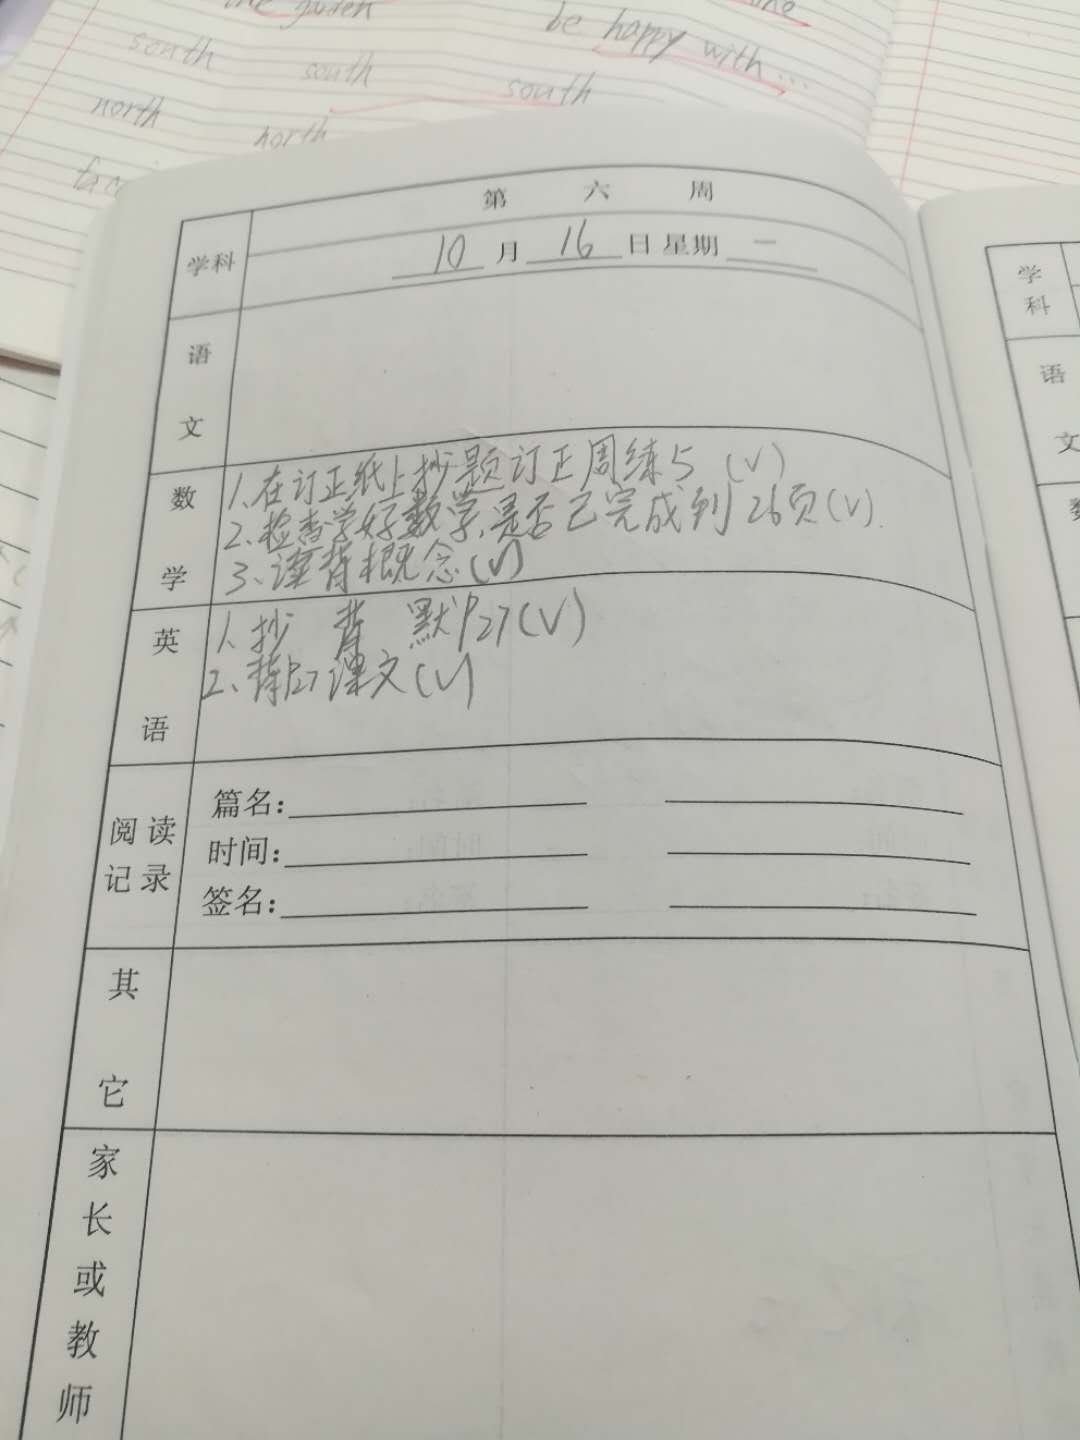 the garden
be happy with...
south
south
south
north
north
第 六 周
学科
10 月 16 日 星期 一
语文
数学
1、在订正纸上抄题订正周练5 (√)
2、检查学好数学,是否已完成到26页(√).
3、读背概念(√)
英语
1、抄 背 默P27(√)
2、背P27课文(√)
阅读记录
篇名:
时间:
签名:
其它
家长或教师
学科
语文